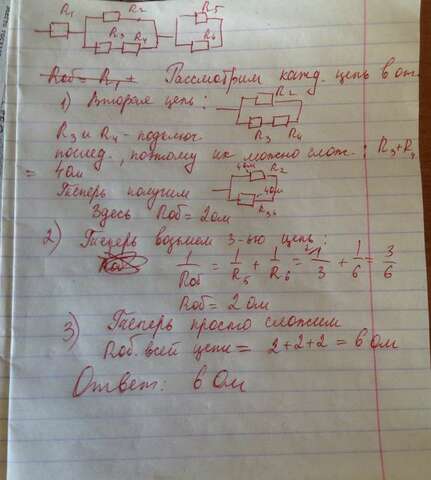 R₁ R₂ R₃ R₄ R₅ R₆
Rоб = R₁ + Рассмотрим кажд. цепь в от.
1) Вторая цепь: R₂ R₃ R₄
R₃ и R₄ - подключ.
послед., поэтому их можно слож.: R₃+R₄
= 4 Ом
Теперь получим 4 Ом R₂ 4 Ом R₃₄
Здесь Rоб = 2 Ом
2) Теперь возьмем 3-ью цепь:
Rоб 1/Rоб = 1/R₅ + 1/R₆ = 1/3 + 1/6 = 3/6
Rоб = 2 Ом
3) Теперь просто сложим
Rоб. всей цепи = 2+2+2 = 6 Ом
Ответ: 6 Ом